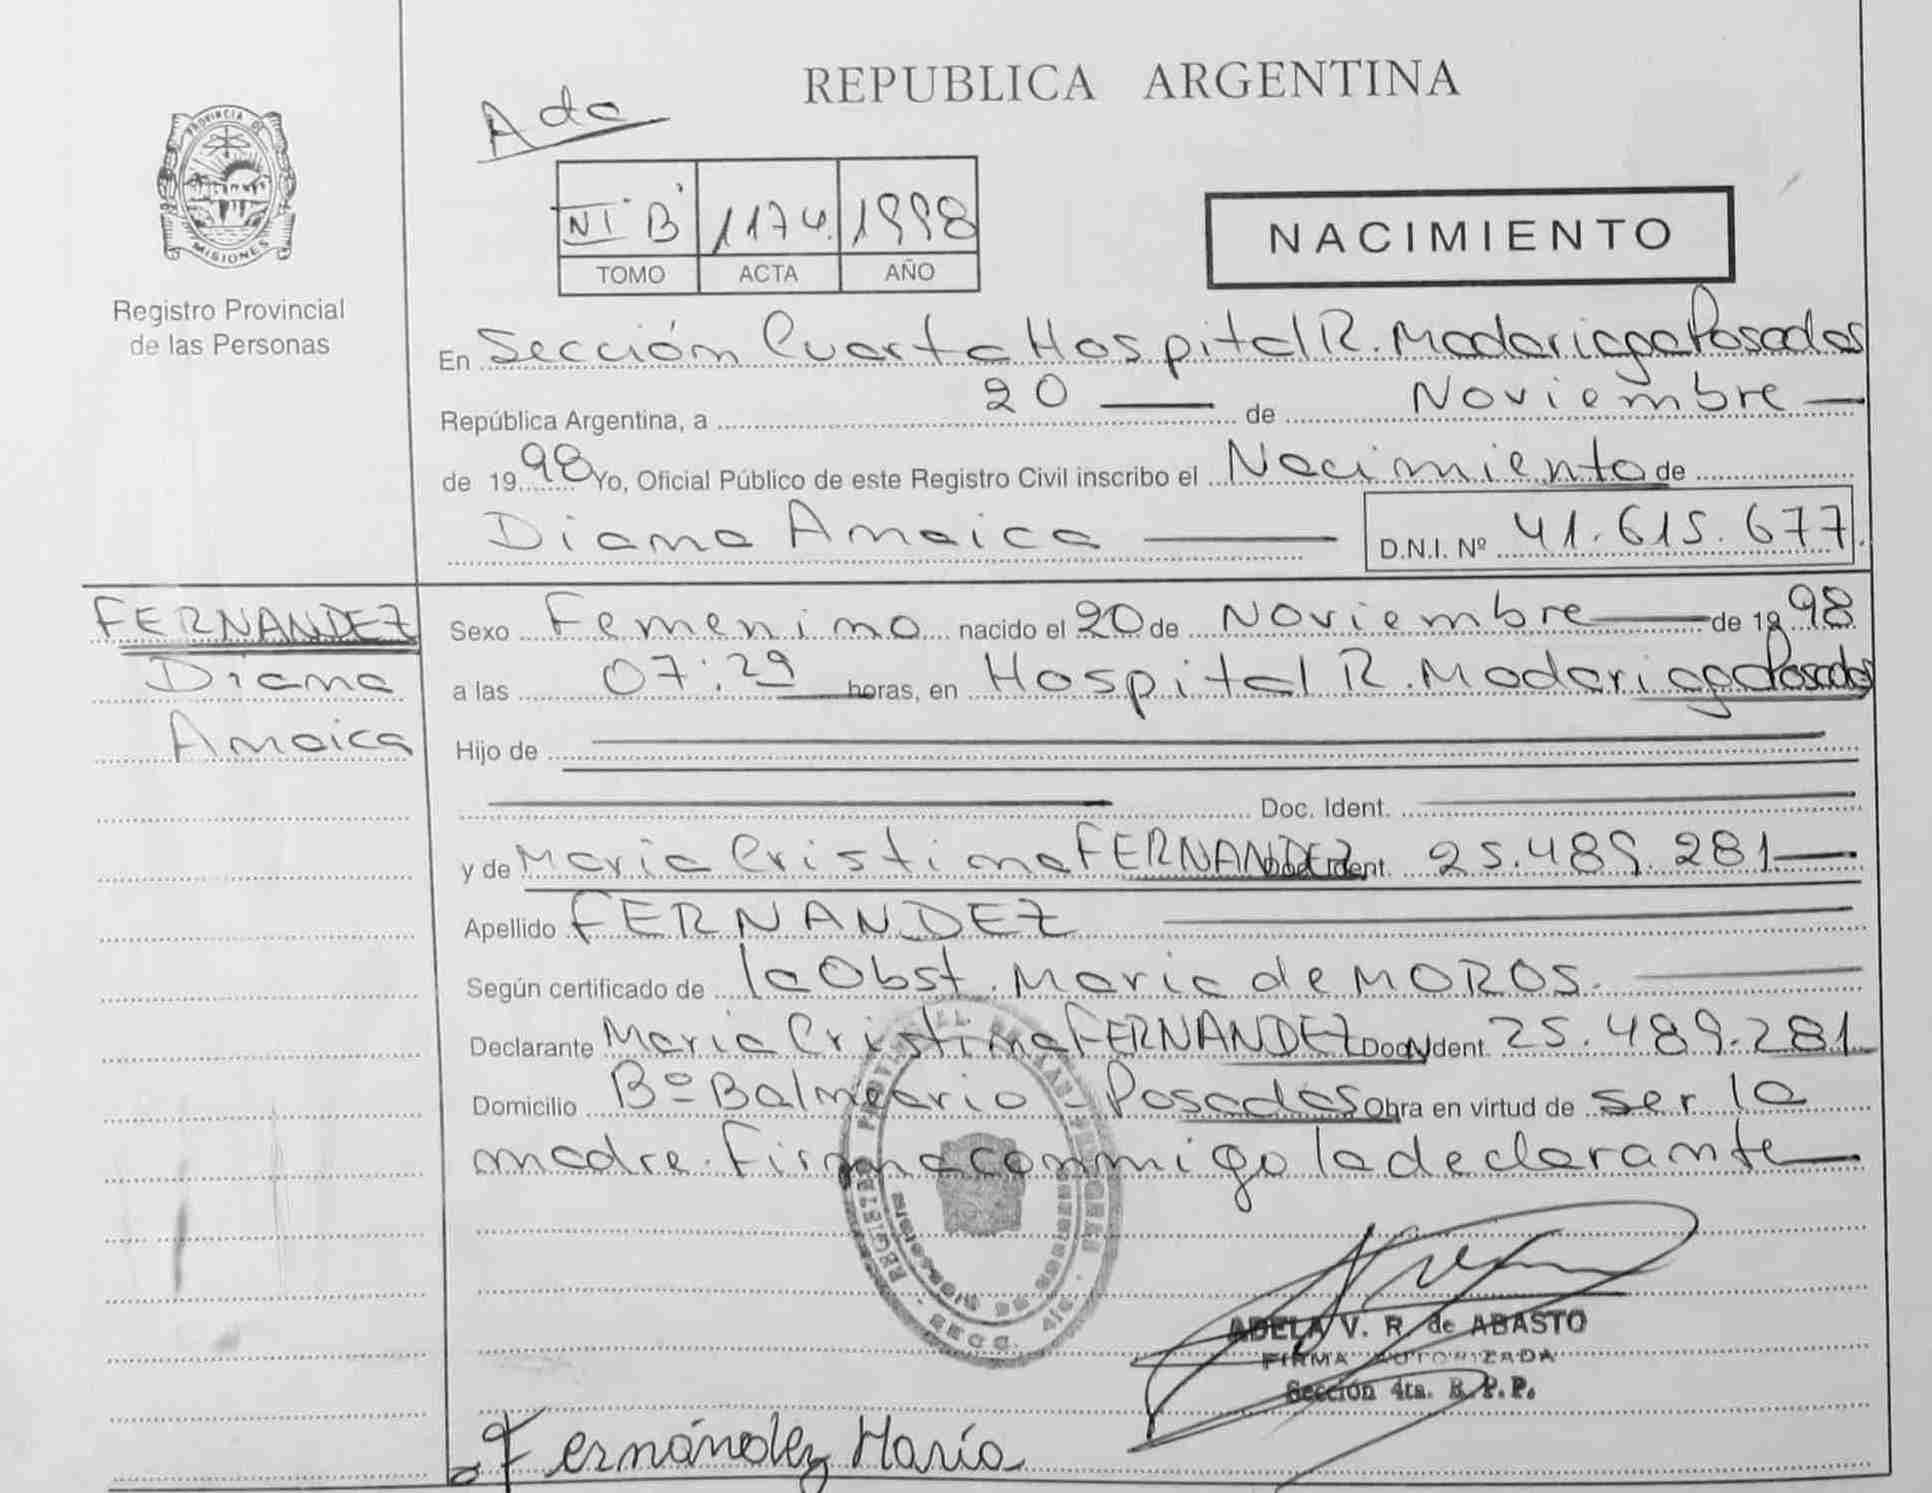 REPUBLICA ARGENTINA
PROVINCIA DE
MISIONES
Registro Provincial
de las Personas
Ada
VI B 1174 1998
TOMO ACTA AÑO
NACIMIENTO
En Sección Cuarta Hospital R. Madariaga Posadas
República Argentina, a 20 de Noviembre
de 1998 Yo, Oficial Público de este Registro Civil inscribo el Nacimiento de
Diana Amaica D.N.I. Nº 41.615.677.
FERNANDEZ
Diana
Amaica
Sexo Femenino nacido el 20 de Noviembre de 1998
a las 07:29 horas, en Hospital R. Madariaga Posadas
Hijo de
Doc. Ident.
y de Maria Cristina FERNANDEZ Doc. Ident. 25.489.281
Apellido FERNANDEZ
Según certificado de la Obst. Maria de MOROS.
Declarante Maria Cristina FERNANDEZ Doc. Ident. 25.489.281
Domicilio Bº Balneario - Posadas Obra en virtud de ser la
madre. Firma conmigo la declarante
ADELA V. R. de ABASTO
FIRMA AUTORIZADA
Sección 4ta. R. P. P.
Fernández María